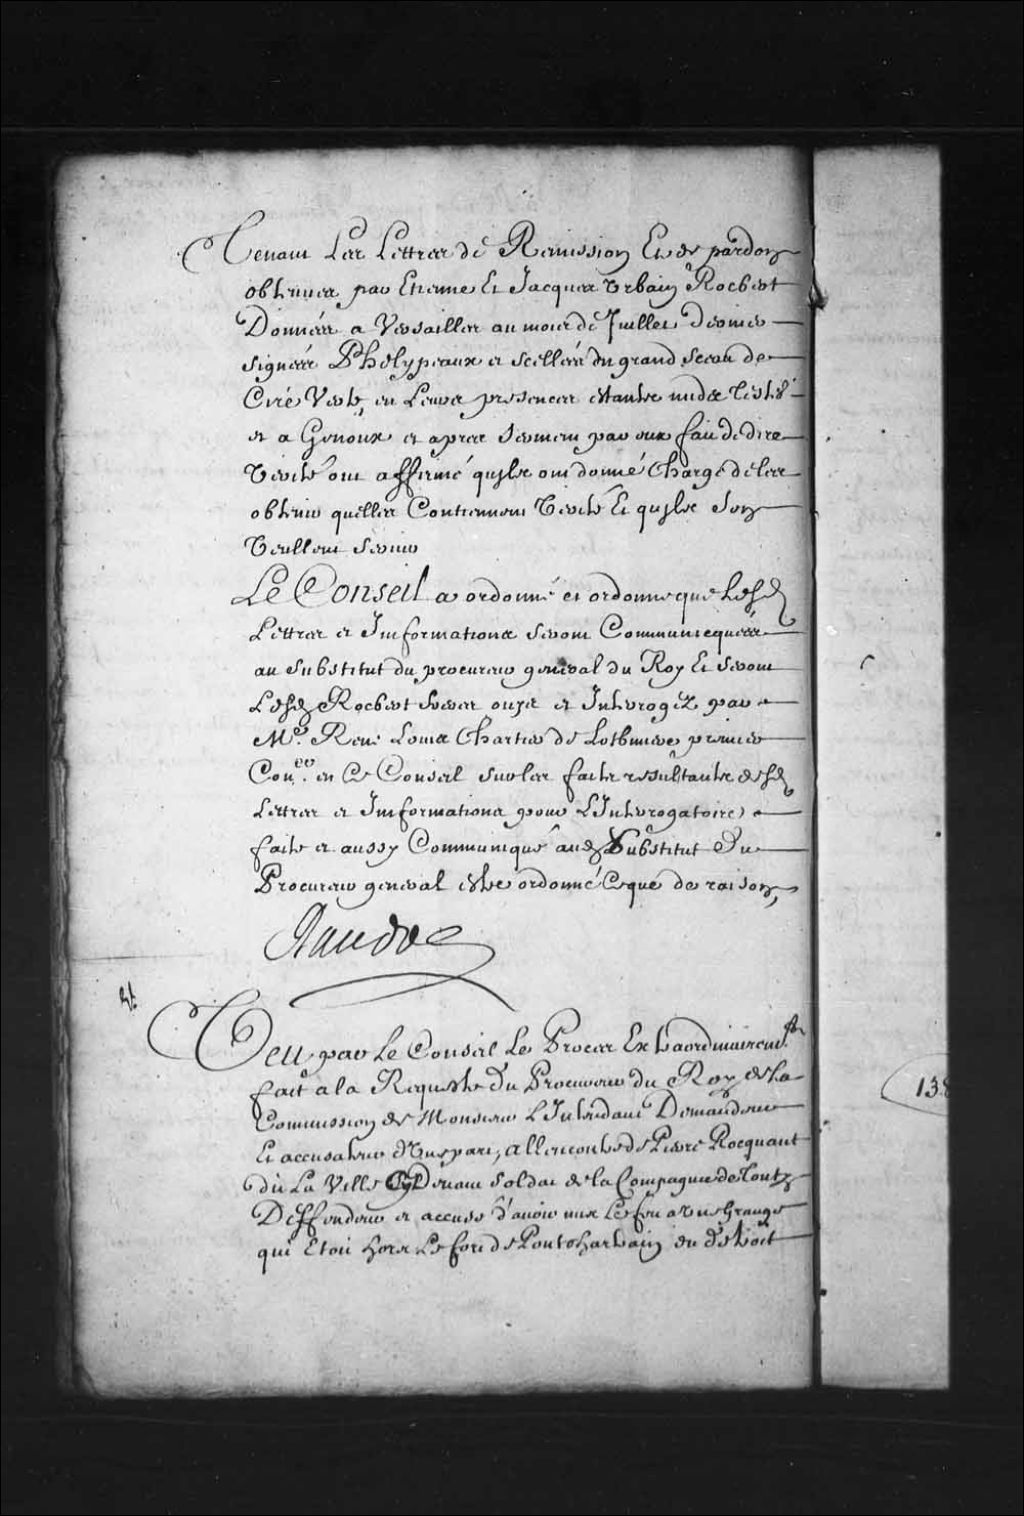 Tenant Les Lettres de Remission Et de pardon
obtenues par Etienne Et Jacques Urbain Rocbert
Données a Versailles au mois de Juillet dernier
signées Phelypeaux et scellées du grand sceau de
Cire Verte, en Leurs presences estants nuds Testes
et a Genoux et apres serment par eux fait de dire
Verité ont affirmé qu'ils ont donné Charge de les
obtenir quelles Contiennent Verité Et qu'ils sen
Veullent servir
Le Conseil a ordonné et ordonne que Lesd
Lettres et Informations seront Communiquées
au substitut du procureur general du Roy Et seront
Lesd Rocbert freres ouys et Interrogez par
Me. Rene Louis Chartier de Lotbiniere premier
Coner. en Ce Conseil sur les faits resultants desd
Lettres et Informations pour L'Interrogatoire
fait et aussy Communiqué aud Substitut Du
Procureur general estre ordonné Ce que de raison,
Raudot
Veu par Le Conseil Le Proces Extraordinairemt.
fait a la Requeste Du Procureur du Roy de La
Commission de Monsieur L'Intendant Demandeur
Et accusateur d'Une part, allencontre de Pierre Rocquant
dit La Ville Cy Devant soldat de la Compagnie de Tonty
Deffendeur et accusé d'avoir mis Le feu a Une Grange
qui Etoit hors Le fort de Pontchartrain du Détroit
138